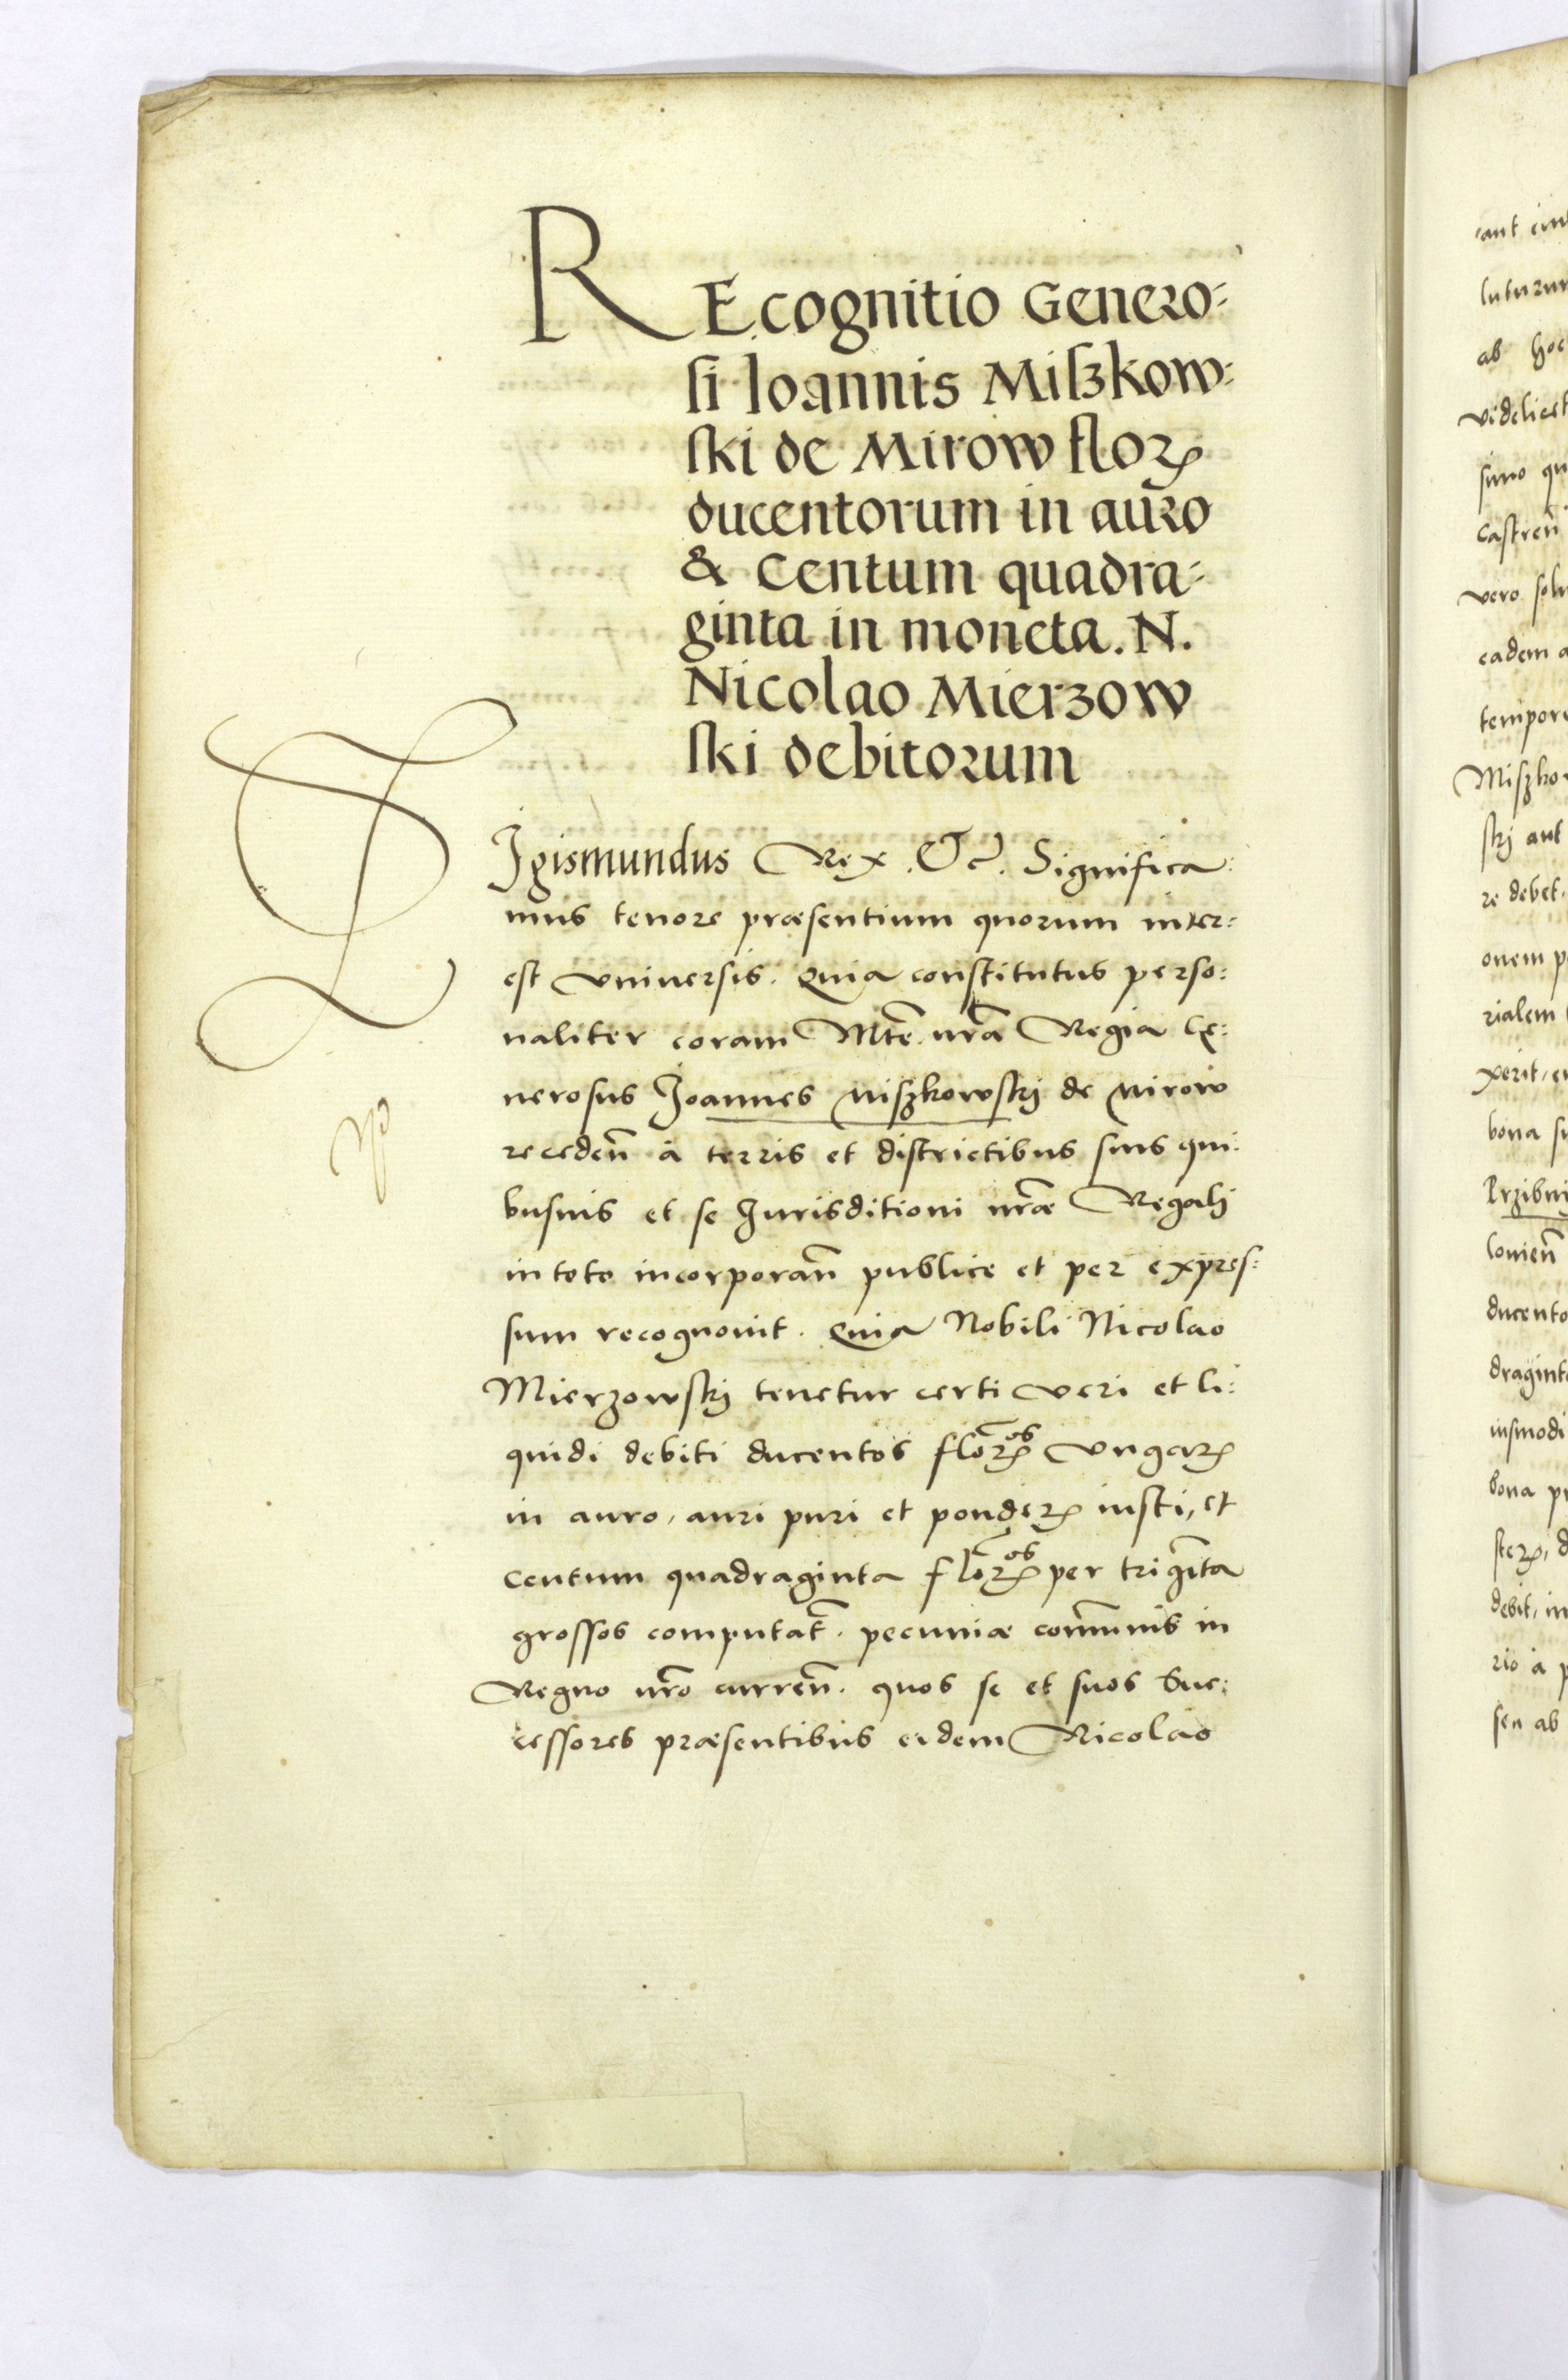 REcognitio Genero=
ſi Ioannis Miſzkow=
ſki de Mirow floꝝ
ducentorum in auro
& Centum quadra=
ginta in moneta. N.
Nicolao Mierzow
ſki debitorum
SIgismundus Rex. Etc̃. Significa:
mus tenore præsentium quorum inter:
est vniuersis. Quia constitutus perso:
naliter coram Mt̃e nr̃a Regia Ge:
nerosus Joannes Miszkowskj de Mirow
receden̄ à terris et districtibus suis qui:
busuis et se Jurisditioni nr̃æ Regalj
in toto incorporan̄ publice et per expres:
sum recognouit. Quia Nobili Nicolao
Mierzowskj tenetur certi veri et li:
quidi debiti ducentos floꝝos Vngaꝝ
in auro, auri puri et pondeꝝ iusti, et
centum quadraginta floꝝos per trigĩta
grossos computat̃. pecuniæ com̄unis in
Regno nr̃o curren̄. quos se et suos Suc:
cessores præsentibus eidem Nicolao
ab hoc
videlicet
Castren̄
eadem a
tempore
Miszkow
skj aut
re debet.
onem p
rialem
xerit, e
bona su
Przibui
louien̄
ducento
draginta
iusmodi
bona pr
debit, in
rio à p
seu ab